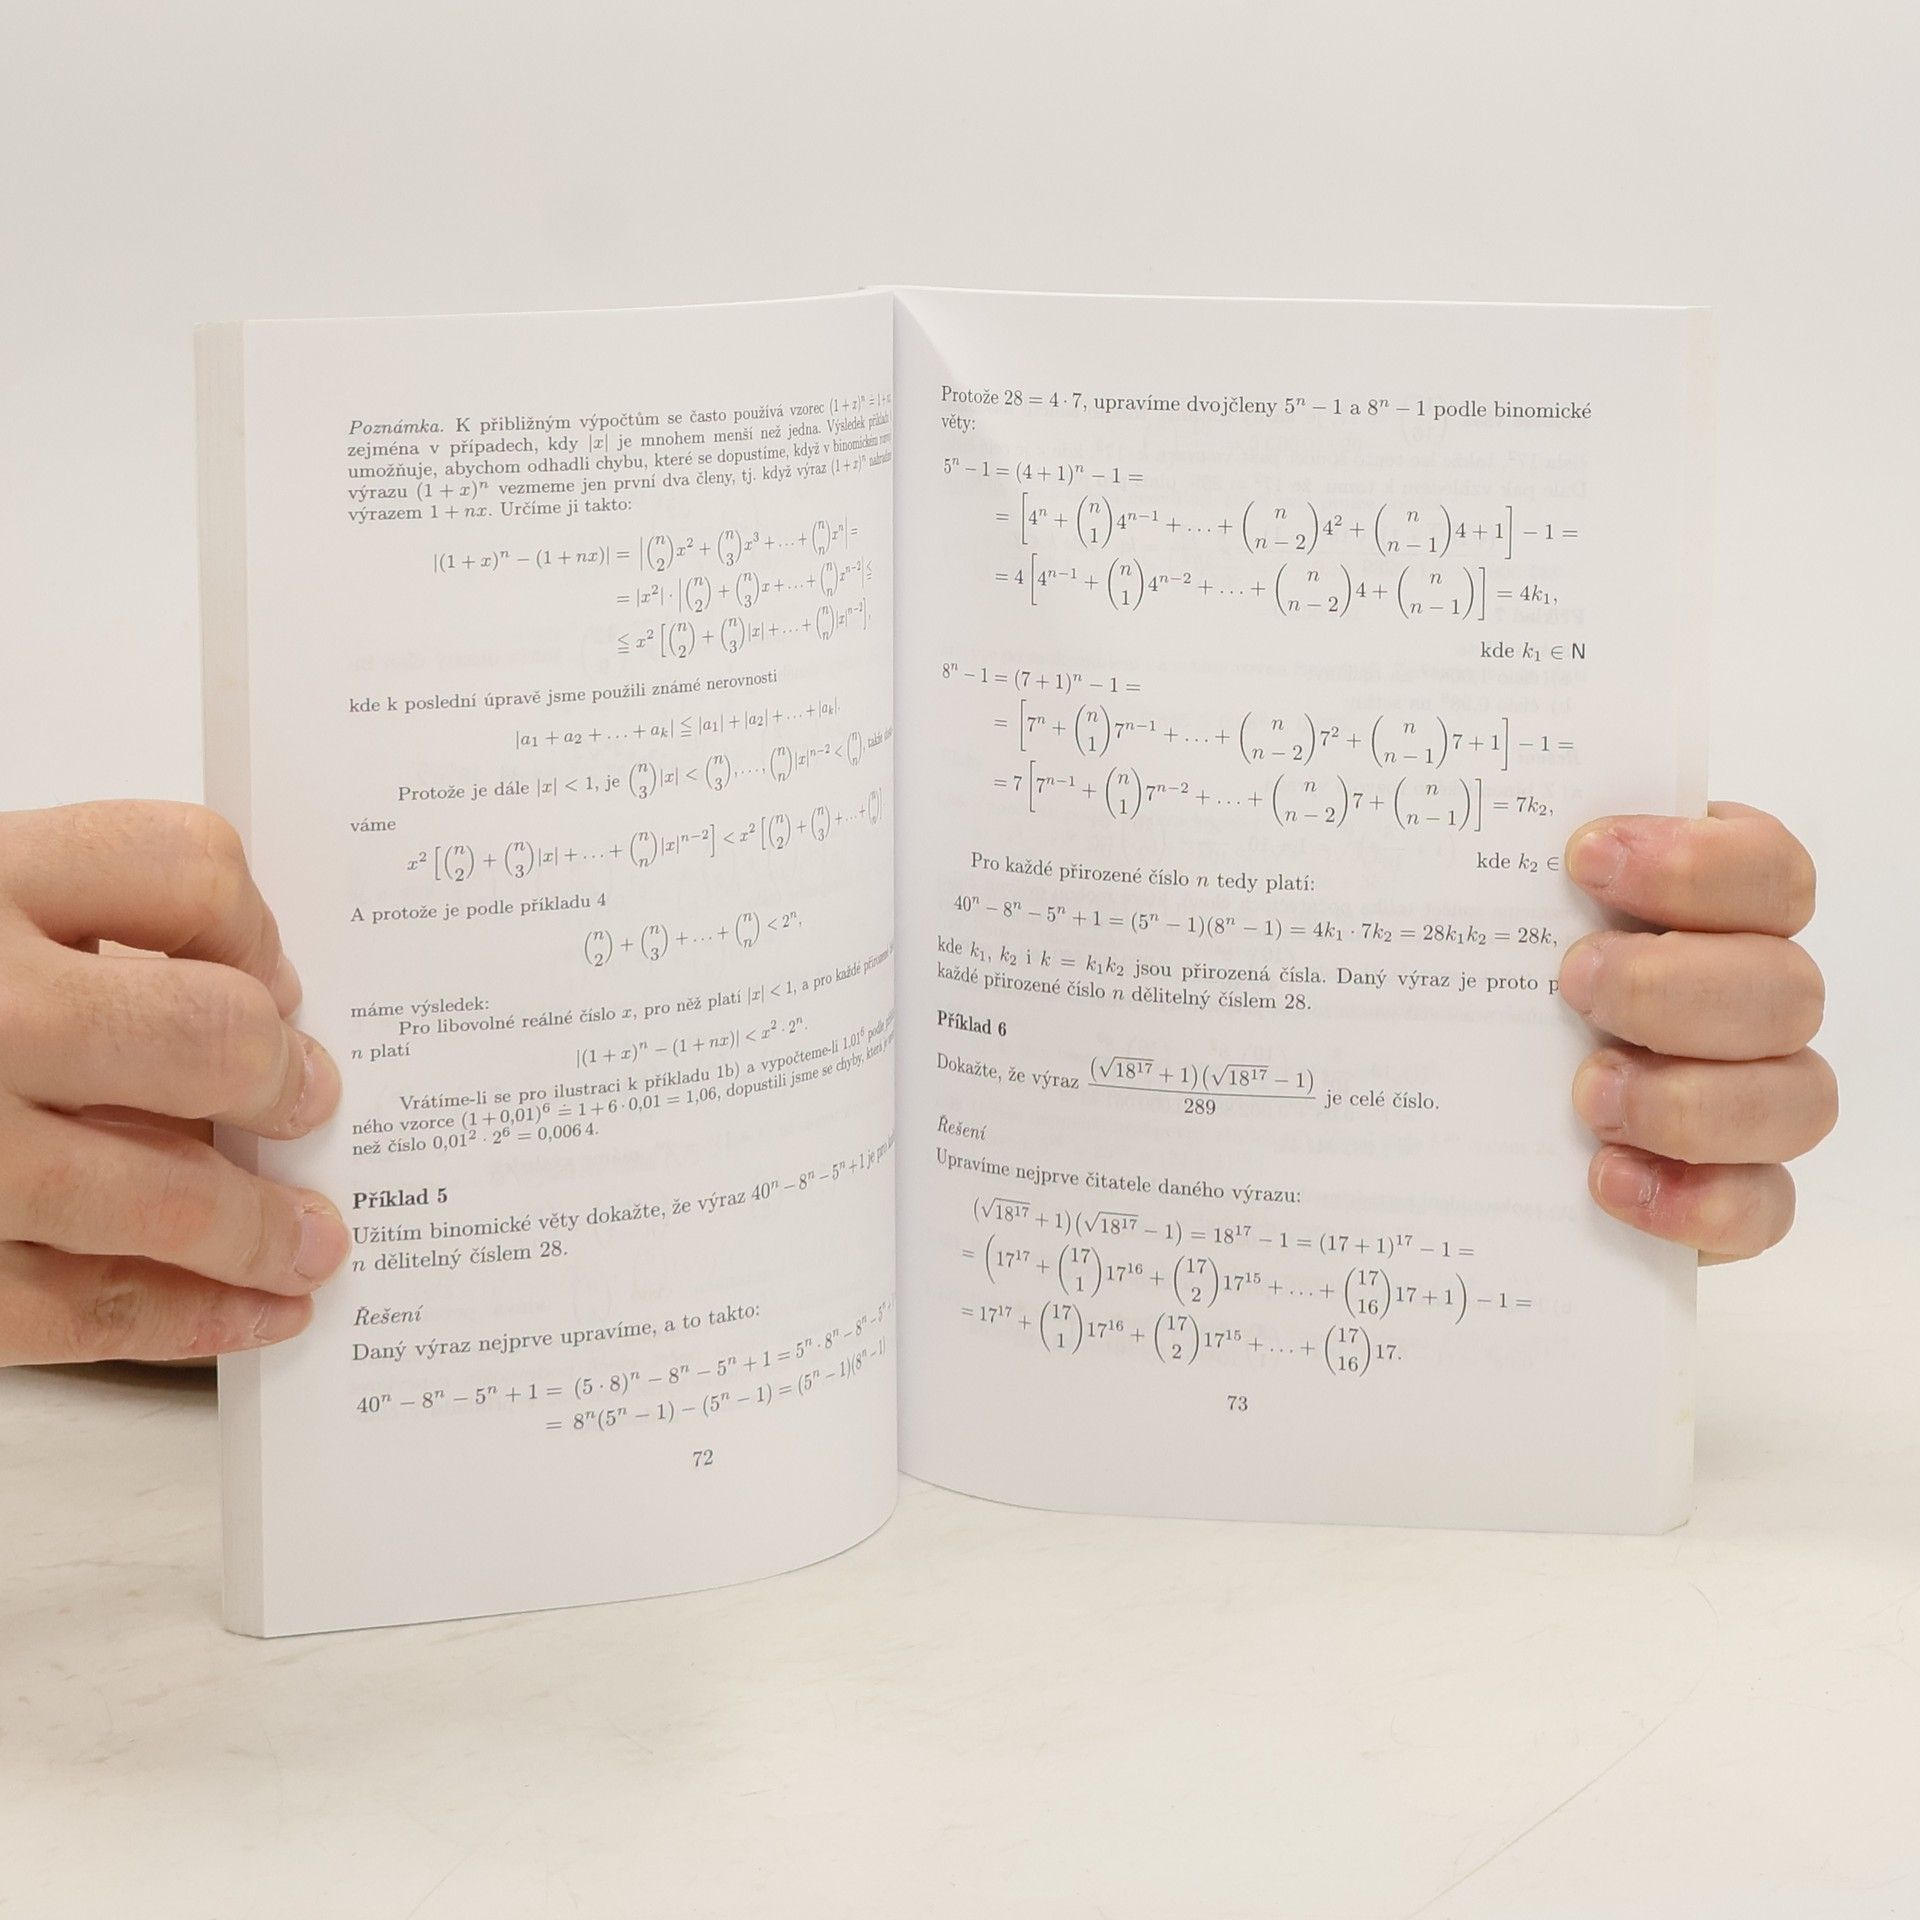 Poznámka. K přibližným výpočtům se často používá vzorec (1 + x)ⁿ ≐ 1 + nx
zejména v případech, kdy |x| je mnohem menší než jedna. Výsledek příkladu
umožňuje, abychom odhadli chybu, které se dopustíme, když v binomickém
výrazu (1 + x)ⁿ vezmeme jen první dva členy, tj. když výraz (1 + x)ⁿ nahradíme
výrazem 1 + nx. Určíme ji takto:
|(1 + x)ⁿ − (1 + nx)| = |(n 2)x² + (n 3)x³ + ... + (n n)xⁿ| =
= |x²| · |(n 2) + (n 3)x + ... + (n n)xⁿ⁻²| ≦
≦ x² [(n 2) + (n 3)|x| + ... + (n n)|x|ⁿ⁻²],
kde k poslední úpravě jsme použili známé nerovnosti
|a₁ + a₂ + ... + aₖ| ≦ |a₁| + |a₂| + ... + |aₖ|.
Protože je dále |x| < 1, je (n 3)|x| < (n 3), ..., (n n)|x|ⁿ⁻² < (n n), takže
váme
x² [(n 2) + (n 3)|x| + ... + (n n)|x|ⁿ⁻²] < x² [(n 2) + (n 3) + ... + (n n)]
A protože je podle příkladu 4
(n 2) + (n 3) + ... + (n n) < 2ⁿ,
máme výsledek:
Pro libovolné reálné číslo x, pro něž platí |x| < 1, a pro každé přirozené
n platí
|(1 + x)ⁿ − (1 + nx)| < x² · 2ⁿ.
Vrátíme-li se pro ilustraci k příkladu 1b) a vypočteme-li 1,01⁶ podle
ného vzorce (1 + 0,01)⁶ ≐ 1 + 6 · 0,01 = 1,06, dopustili jsme se chyby, která je
než číslo 0,01² · 2⁶ = 0,006 4.
Příklad 5
Užitím binomické věty dokažte, že výraz 40ⁿ − 8ⁿ − 5ⁿ + 1 je pro
n dělitelný číslem 28.
Řešení
Daný výraz nejprve upravíme, a to takto:
40ⁿ − 8ⁿ − 5ⁿ + 1 = (5 · 8)ⁿ − 8ⁿ − 5ⁿ + 1 = 5ⁿ · 8ⁿ − 8ⁿ − 5ⁿ
= 8ⁿ(5ⁿ − 1) − (5ⁿ − 1) = (5ⁿ − 1)(8ⁿ − 1)
72
Protože 28 = 4 · 7, upravíme dvojčleny 5ⁿ − 1 a 8ⁿ − 1 podle binomické
věty:
5ⁿ − 1 = (4 + 1)ⁿ − 1 =
= [4ⁿ + (n 1)4ⁿ⁻¹ + ... + (n n − 2)4² + (n n − 1)4 + 1] − 1 =
= 4 [4ⁿ⁻¹ + (n 1)4ⁿ⁻² + ... + (n n − 2)4 + (n n − 1)] = 4k₁,
kde k₁ ∈ N
8ⁿ − 1 = (7 + 1)ⁿ − 1 =
= [7ⁿ + (n 1)7ⁿ⁻¹ + ... + (n n − 2)7² + (n n − 1)7 + 1] − 1 =
= 7 [7ⁿ⁻¹ + (n 1)7ⁿ⁻² + ... + (n n − 2)7 + (n n − 1)] = 7k₂,
kde k₂ ∈
Pro každé přirozené číslo n tedy platí:
40ⁿ − 8ⁿ − 5ⁿ + 1 = (5ⁿ − 1)(8ⁿ − 1) = 4k₁ · 7k₂ = 28k₁k₂ = 28k,
kde k₁, k₂ i k = k₁k₂ jsou přirozená čísla. Daný výraz je proto p
každé přirozené číslo n dělitelný číslem 28.
Příklad 6
Dokažte, že výraz (√18¹⁷ + 1)(√18¹⁷ − 1) / 289 je celé číslo.
Řešení
Upravíme nejprve čitatele daného výrazu:
(√18¹⁷ + 1)(√18¹⁷ − 1) = 18¹⁷ − 1 = (17 + 1)¹⁷ − 1 =
= (17¹⁷ + (17 1)17¹⁶ + (17 2)17¹⁵ + ... + (17 16)17 + 1) − 1 =
= 17¹⁷ + (17 1)17¹⁶ + (17 2)17¹⁵ + ... + (17 16)17.
73